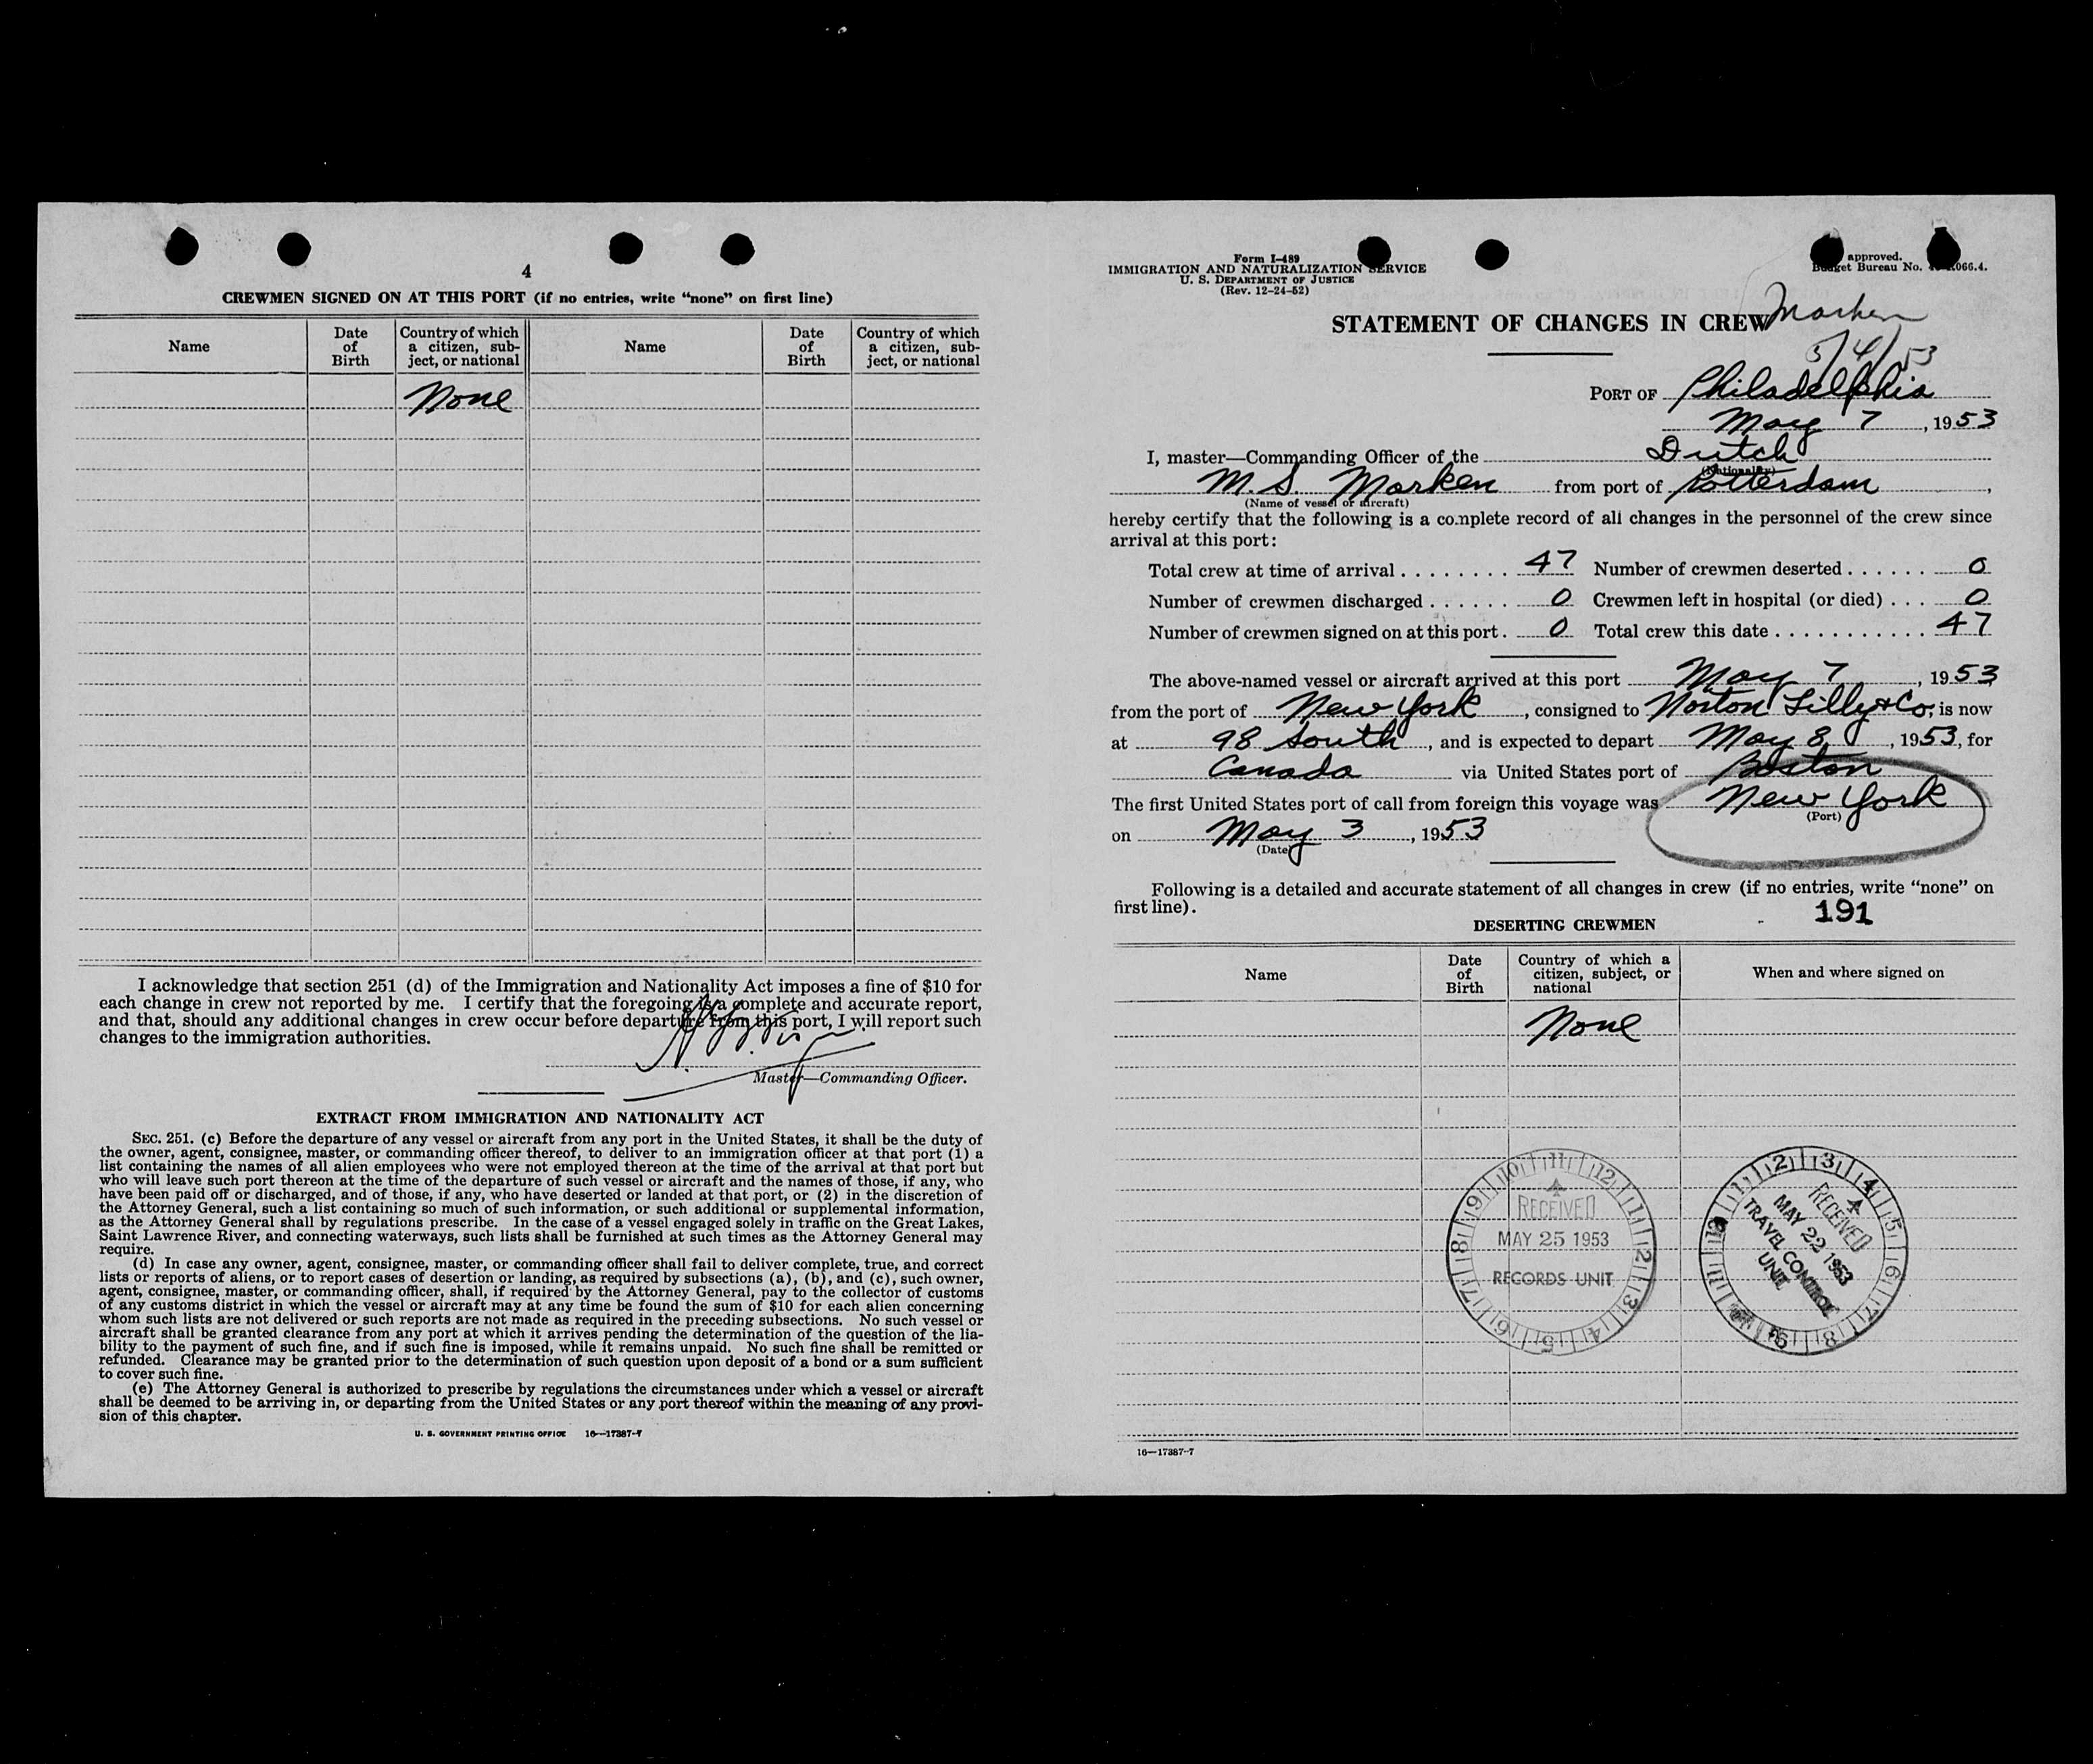 4
CREWMEN SIGNED ON AT THIS PORT (if no entries, write “none” on first line)
Name
Date of Birth
Country of which a citizen, sub-ject, or national
Name
Date of Birth
Country of which a citizen, sub-ject, or national
None
I acknowledge that section 251 (d) of the Immigration and Nationality Act imposes a fine of $10 for
each change in crew not reported by me. I certify that the foregoing is a complete and accurate report,
and that, should any additional changes in crew occur before departure from this port, I will report such
changes to the immigration authorities.
Master—Commanding Officer.
EXTRACT FROM IMMIGRATION AND NATIONALITY ACT
SEC. 251. (c) Before the departure of any vessel or aircraft from any port in the United States, it shall be the duty of
the owner, agent, consignee, master, or commanding officer thereof, to deliver to an immigration officer at that port (1) a
list containing the names of all alien employees who were not employed thereon at the time of the arrival at that port but
who will leave such port thereon at the time of the departure of such vessel or aircraft and the names of those, if any, who
have been paid off or discharged, and of those, if any, who have deserted or landed at that port, or (2) in the discretion of
the Attorney General, such a list containing so much of such information, or such additional or supplemental information,
as the Attorney General shall by regulations prescribe. In the case of a vessel engaged solely in traffic on the Great Lakes,
Saint Lawrence River, and connecting waterways, such lists shall be furnished at such times as the Attorney General may
require.
(d) In case any owner, agent, consignee, master, or commanding officer shall fail to deliver complete, true, and correct
lists or reports of aliens, or to report cases of desertion or landing, as required by subsections (a), (b), and (c), such owner,
agent, consignee, master, or commanding officer, shall, if required by the Attorney General, pay to the collector of customs
of any customs district in which the vessel or aircraft may at any time be found the sum of $10 for each alien concerning
whom such lists are not delivered or such reports are not made as required in the preceding subsections. No such vessel or
aircraft shall be granted clearance from any port at which it arrives pending the determination of the question of the lia-
bility to the payment of such fine, and if such fine is imposed, while it remains unpaid. No such fine shall be remitted or
refunded. Clearance may be granted prior to the determination of such question upon deposit of a bond or a sum sufficient
to cover such fine.
(e) The Attorney General is authorized to prescribe by regulations the circumstances under which a vessel or aircraft
shall be deemed to be arriving in, or departing from the United States or any port thereof within the meaning of any provi-
sion of this chapter.
U. S. GOVERNMENT PRINTING OFFICE 16—17387-7
Form I-489
IMMIGRATION AND NATURALIZATION SERVICE
U. S. DEPARTMENT OF JUSTICE
(Rev. 12-24-52)
approved.
Budget Bureau No. 066.4.
STATEMENT OF CHANGES IN CREW
Marken
5/4/53
PORT OF Philadelphia
May 7, 1953
I, master—Commanding Officer of the Dutch
(Nationality)
M.S. Marken from port of Rotterdam,
(Name of vessel or aircraft)
hereby certify that the following is a complete record of all changes in the personnel of the crew since
arrival at this port:
Total crew at time of arrival ........ 47 Number of crewmen deserted ...... 0
Number of crewmen discharged ...... 0 Crewmen left in hospital (or died) ... 0
Number of crewmen signed on at this port. 0 Total crew this date ........... 47
The above-named vessel or aircraft arrived at this port May 7, 1953
from the port of New York, consigned to Norton Lilly & Co, is now
at 98 South, and is expected to depart May 8, 1953, for
Canada via United States port of Boston
The first United States port of call from foreign this voyage was New York
(Port)
on May 3, 1953
(Date)
Following is a detailed and accurate statement of all changes in crew (if no entries, write “none” on
first line).
191
DESERTING CREWMEN
Name
Date of Birth
Country of which a citizen, subject, or national
When and where signed on
None
RECEIVED
MAY 25 1953
RECORDS UNIT
RECEIVED
MAY 22 1953
TRAVEL CONTROL
UNIT
16—17387-7